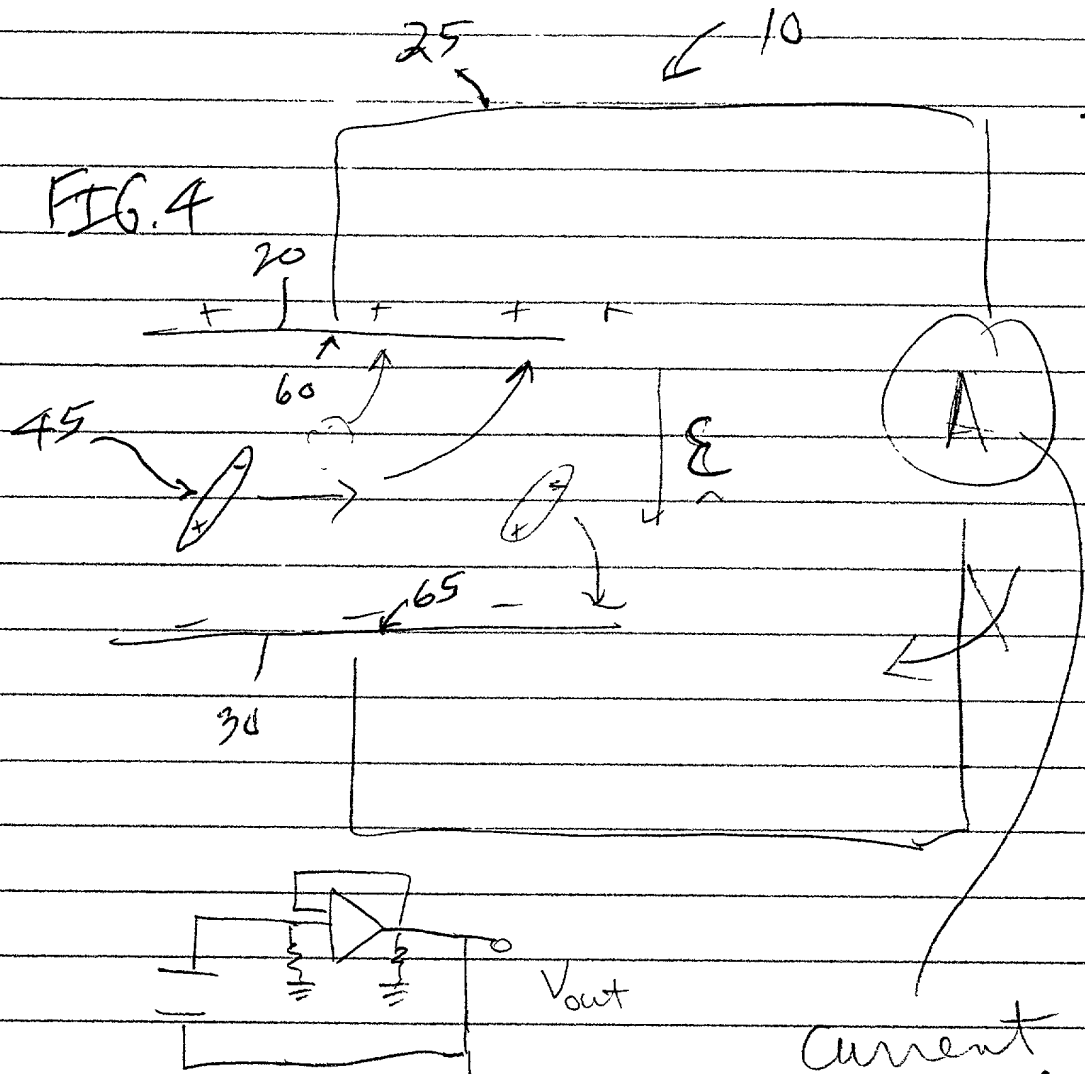 25
10
FIG. 4
20
+ + + +
60
45
-
+
-
+
ε
A
65
- - -
30
Vout
Current